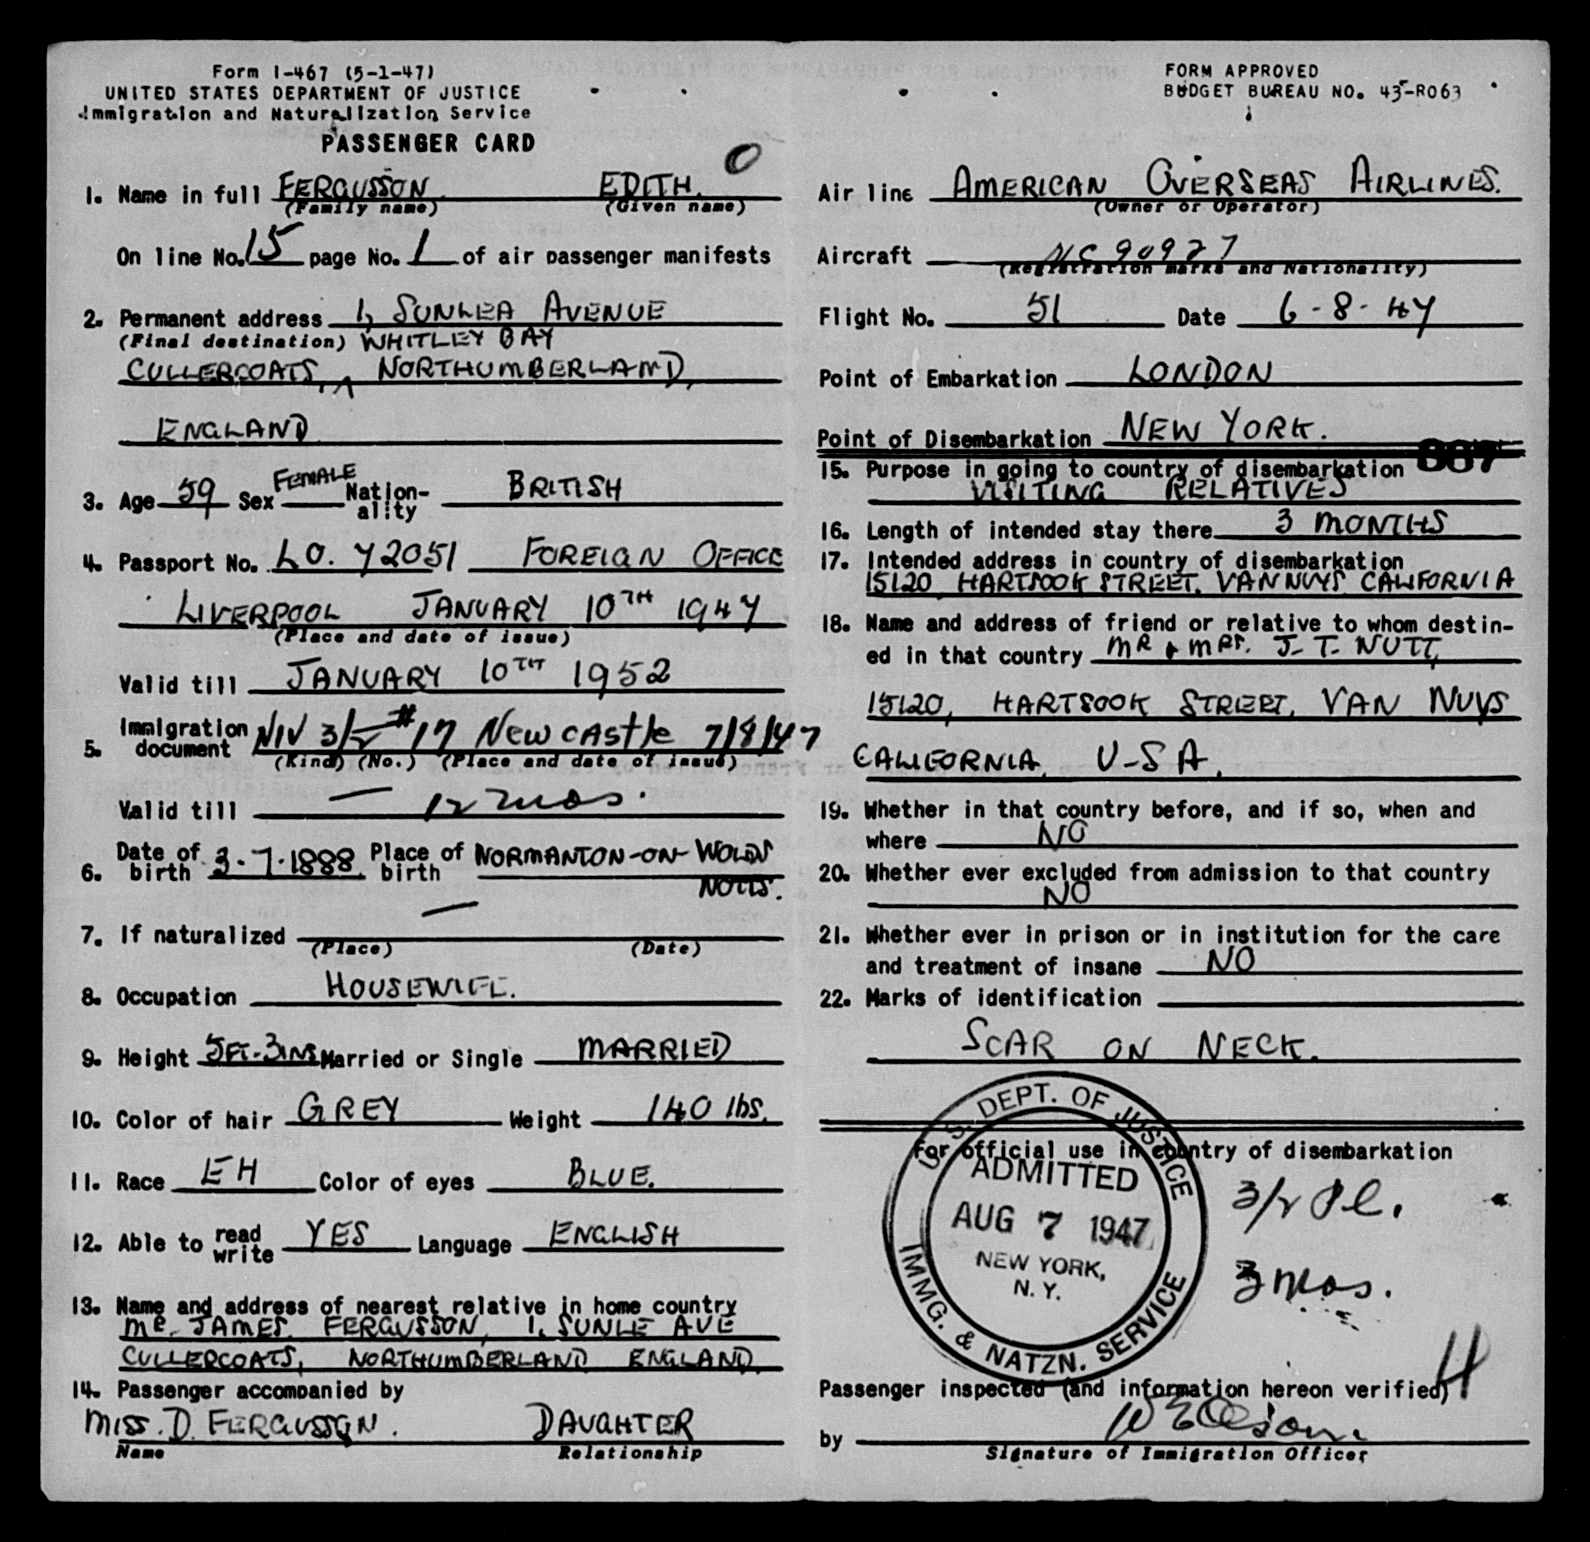 Form I-467 (5-1-47)
UNITED STATES DEPARTMENT OF JUSTICE
Immigration and Naturalization Service
PASSENGER CARD
0
1. Name in full FERGUSSON EDITH.
(Family name) (Given name)
On line No. 15 page No. 1 of air passenger manifests
2. Permanent address 1, SUNLEA AVENUE
(Final destination) WHITLEY BAY
CULLERCOATS, ^ NORTHUMBERLAND,
ENGLAND
3. Age 59 Sex FEMALE Nation-ality BRITISH
4. Passport No. LO. 72051 FOREIGN OFFICE
LIVERPOOL JANUARY 10TH 1947
(Place and date of issue)
Valid till JANUARY 10TH 1952
5. Immigration document NIV 3/2 #17 Newcastle 7/8/47
(Kind) (No.) (Place and date of issue)
Valid till — 12 mos.
6. Date of birth 3-7-1888 Place of birth NORMANTON-ON-WOLDS
NOTTS.
7. If naturalized —
(Place) (Date)
8. Occupation HOUSEWIFE.
9. Height 5FT-3INS Married or Single MARRIED
10. Color of hair GREY Weight 140 lbs.
11. Race EH Color of eyes BLUE.
12. Able to read write YES Language ENGLISH
13. Name and address of nearest relative in home country
MR. JAMES FERGUSSON, 1, SUNLE AVE
CULLERCOATS, NORTHUMBERLAND ENGLAND.
14. Passenger accompanied by
MISS. D. FERGUSSON. DAUGHTER
Name Relationship
FORM APPROVED
BUDGET BUREAU NO. 43-R063
Air line AMERICAN OVERSEAS AIRLINES.
(Owner or Operator)
Aircraft NC90927
(Registration marks and Nationality)
Flight No. 51 Date 6-8-47
Point of Embarkation LONDON
Point of Disembarkation NEW YORK.
867
15. Purpose in going to country of disembarkation
VISITING RELATIVES
16. Length of intended stay there 3 MONTHS
17. Intended address in country of disembarkation
15120 HARTSOOK STREET. VAN NUYS CALIFORNIA
18. Name and address of friend or relative to whom destin-
ed in that country MR & MRS. J-T-NUTT,
15120, HARTSOOK STREET, VAN NUYS
CALIFORNIA, U-S A.
19. Whether in that country before, and if so, when and
where NO
20. Whether ever excluded from admission to that country
NO
21. Whether ever in prison or in institution for the care
and treatment of insane NO
22. Marks of identification
SCAR ON NECK.
For official use in country of disembarkation
U. S. DEPT. OF JUSTICE
ADMITTED
AUG 7 1947
NEW YORK,
N. Y.
IMMG. & NATZN. SERVICE
3/2 Pl.
3 mos.
H
Passenger inspected (and information hereon verified)
by
Signature of Immigration Officer